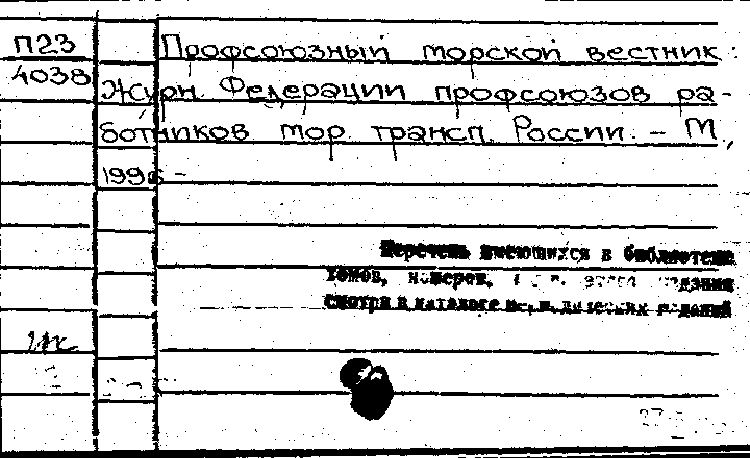 П23
4038
Профсоюзный морской вестник:
Журн. Федерации профсоюзов ра-
ботников мор. трансп. России. – М.,
1996 –
Перечень имеющихся в библиотеке
томов, номеров,
смотри в каталоге периодических изданий